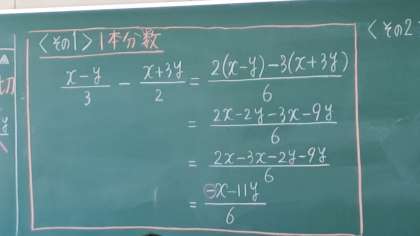 <その1> 1本分数
<その2
(x-y)/3 - (x+3y)/2 = (2(x-y)-3(x+3y))/6
= (2x-2y-3x-9y)/6
= (2x-3x-2y-9y)/6
= (-x-11y)/6